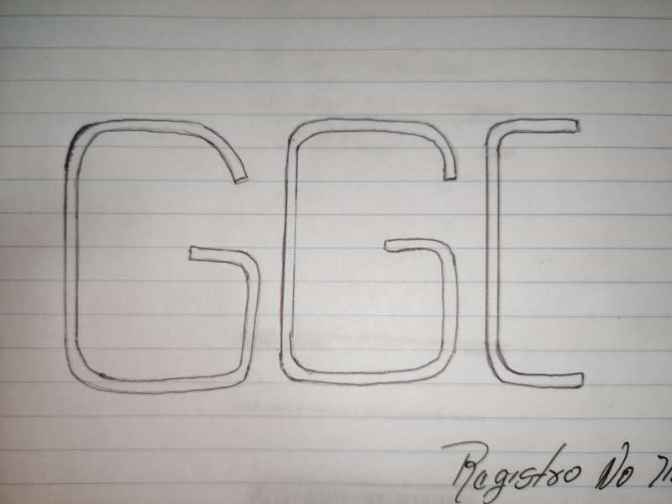 GGC
Registro No